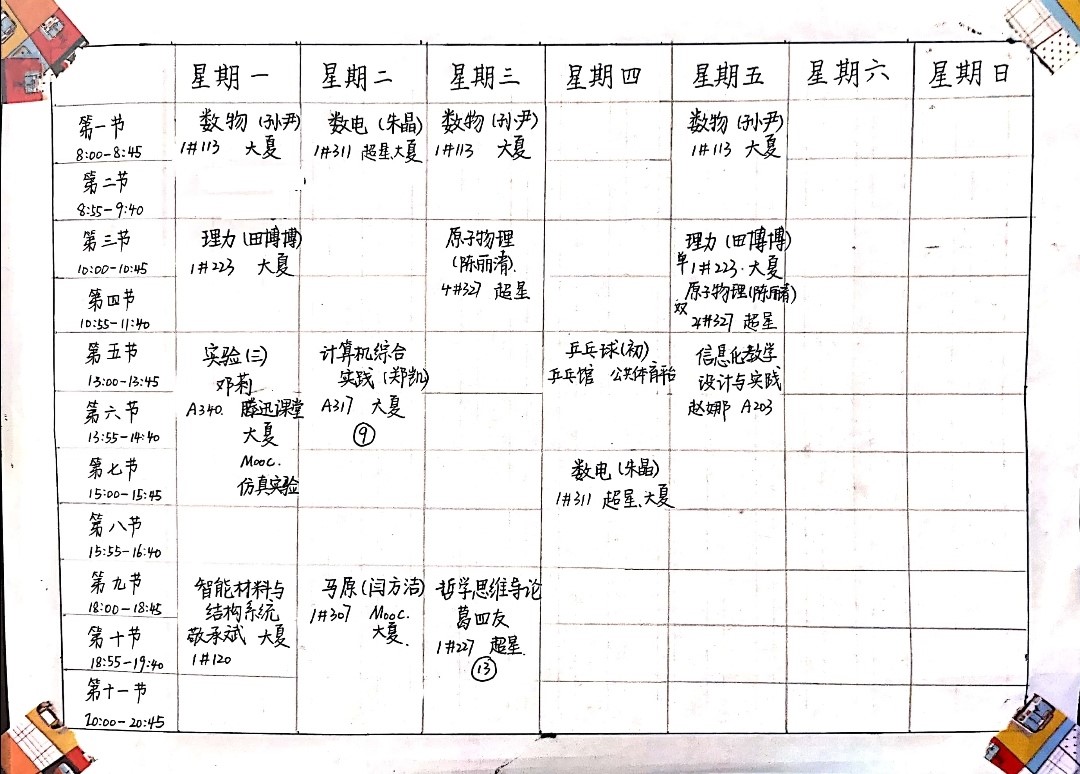 星期一 星期二 星期三 星期四 星期五 星期六 星期日
第一节
8:00-8:45
数物(孙尹)
1#113 大夏
数电(朱晶)
1#311 超星,大夏
数物(孙尹)
1#113 大夏
数物(孙尹)
1#113 大夏
第二节
8:55-9:40
第三节
10:00-10:45
理力(田博博)
1#223 大夏
原子物理
(陈丽清).
4#327 超星
理力(田博博)
单 1#223. 大夏
第四节
10:55-11:40
原子物理(陈丽清)
双 4#327 超星
第五节
13:00-13:45
实验(三)
邓莉
A340. 腾迅课堂
大夏
Mooc.
仿真实验
计算机综合
实践(郑凯)
A317 大夏
⑨
乒乓球(初)
乒乓馆 公共体育平台
信息化教学
设计与实践
赵娜 A203
第六节
13:55-14:40
第七节
15:00-15:45
数电(朱晶)
1#311 超星、大夏
第八节
15:55-16:40
第九节
18:00-18:45
智能材料与
结构系统
敬承斌 大夏
1#120
马原(闫方洁)
1#307 Mooc.
大夏.
哲学思维导论
葛四友
1#227 超星.
⑬
第十节
18:55-19:40
第十一节
20:00-20:45